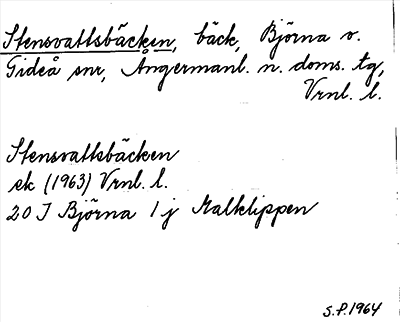 Stensvattsbäcken, bäck, Björna o.
Gideå snr, Ångermanl. n. doms. tg,
Vrnl. l.
Stensvattsbäcken
ek (1963) Vrnl. l.
20 I Björna 1 j Malklippen
S.P. 1964